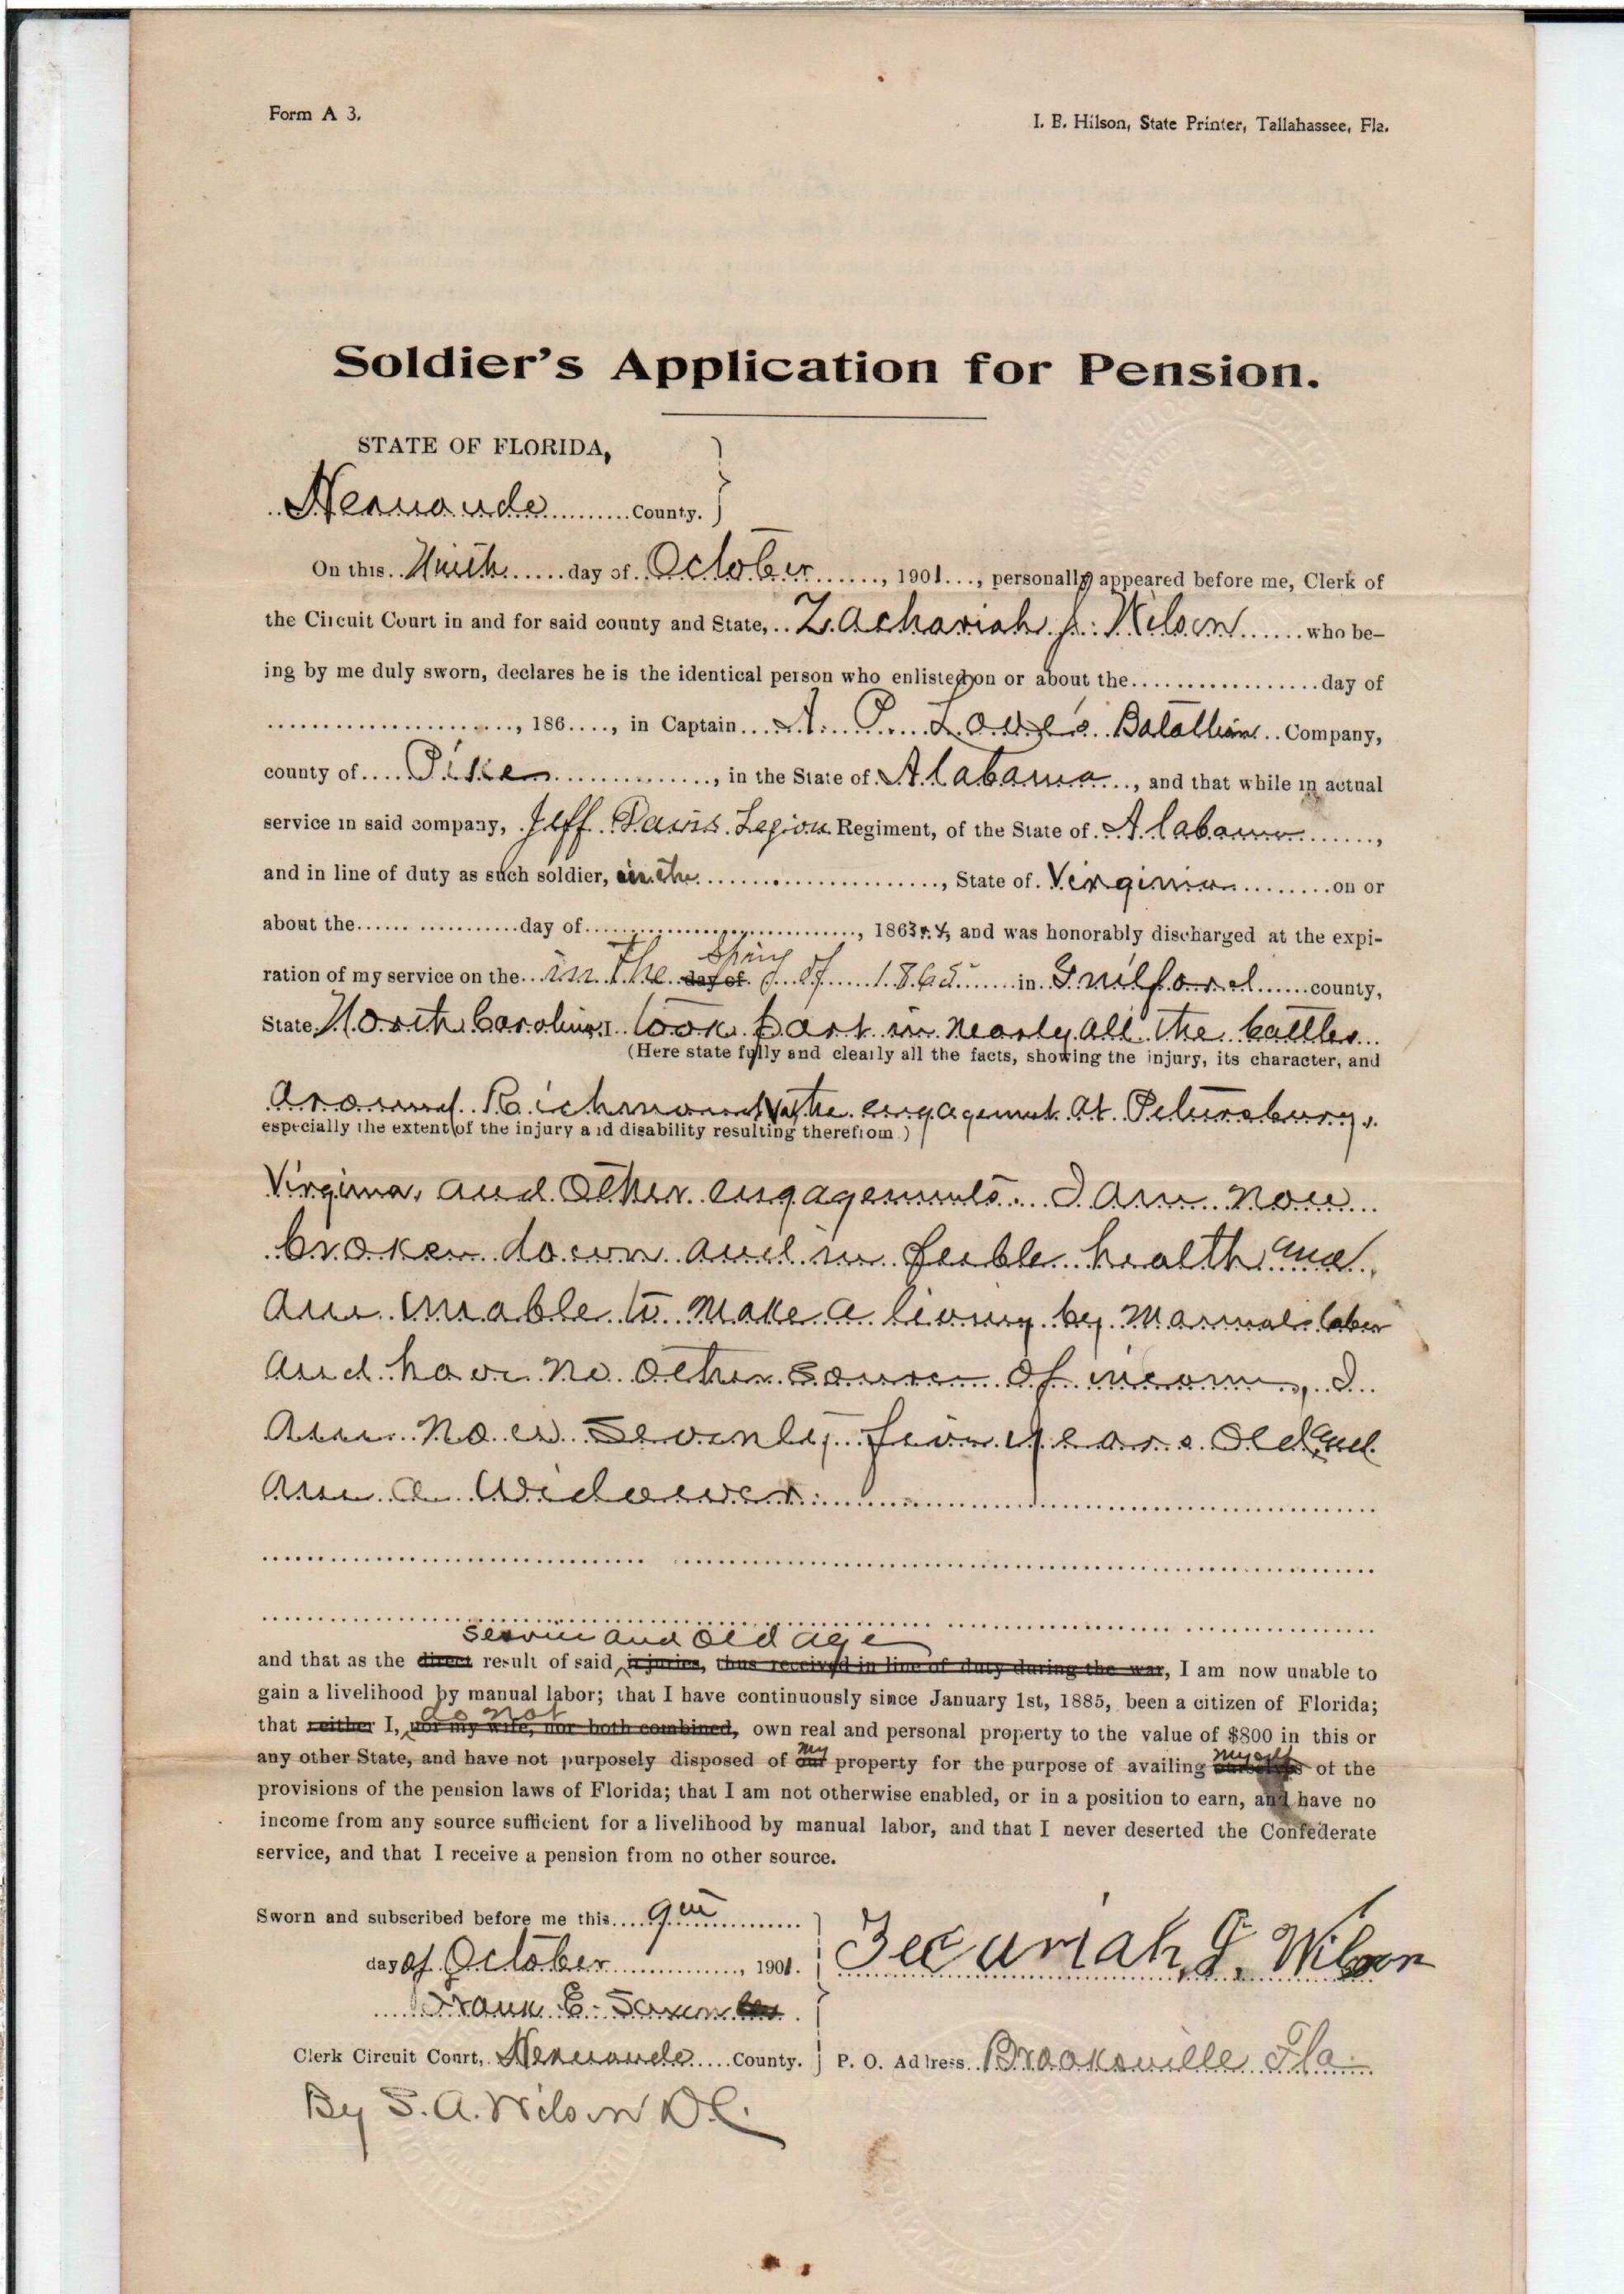 Form A 3.
I. B. Hilson, State Printer, Tallahassee, Fla.
Soldier's Application for Pension.
STATE OF FLORIDA,
Hernando County.
On this Ninth day of October, 1901, personally appeared before me, Clerk of
the Circuit Court in and for said county and State, Zachariah J. Wilson who be-
ing by me duly sworn, declares he is the identical person who enlisted on or about the day of
, 186 , in Captain A. P. Love's Batallion Company,
county of Pike, in the State of Alabama, and that while in actual
service in said company, Jeff Davis Legion Regiment, of the State of Alabama,
and in line of duty as such soldier, in the, State of Virginia on or
about the day of, 1863 & 4, and was honorably discharged at the expi-
ration of my service on the in the day of Spring of 1865 in Guilford county,
State North Carolina, I took part in nearly all the battles
(Here state fully and clearly all the facts, showing the injury, its character, and
around Richmond Va, the engagement at Petursburg,
especially the extent of the injury and disability resulting therefrom.)
Virginia, and other engagements. I am now
broken down and in feeble health and
am unable to make a living by manual labor
and have no other source of income, I
am now seventy five years old and
am a widower.
service and old age
and that as the direct result of said injuries, thus received in line of duty during the war, I am now unable to
gain a livelihood by manual labor; that I have continuously since January 1st, 1885, been a citizen of Florida;
do not
that neither I, nor my wife, nor both combined, own real and personal property to the value of $800 in this or
my myself
any other State, and have not purposely disposed of our property for the purpose of availing ourselves of the
provisions of the pension laws of Florida; that I am not otherwise enabled, or in a position to earn, and have no
income from any source sufficient for a livelihood by manual labor, and that I never deserted the Confederate
service, and that I receive a pension from no other source.
Sworn and subscribed before me this 9th
day of October, 1901.
Zecuriah J. Wilson
Frank E. Saxon
Clerk Circuit Court, Hernando County.
P. O. Address Brooksville Fla.
By S. A. Wilson D.C.